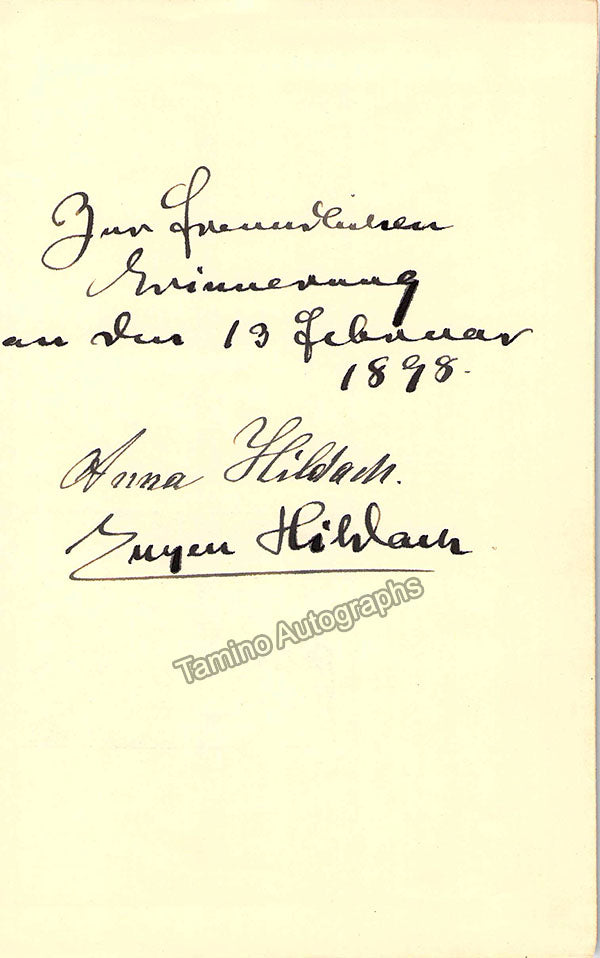 Zur freundlichen
Erinnerung
an den 13 Februar
1898.
Anna Hildach.
Eugen Hildach
Tamino Autographs